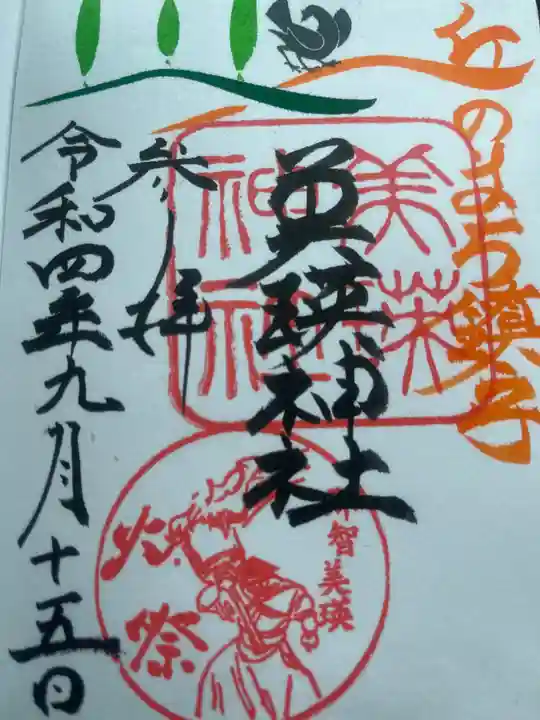 丘のまち鎮守
美瑛神社
美瑛
神社
参拝
令和四年九月十五日
那智美瑛
火祭